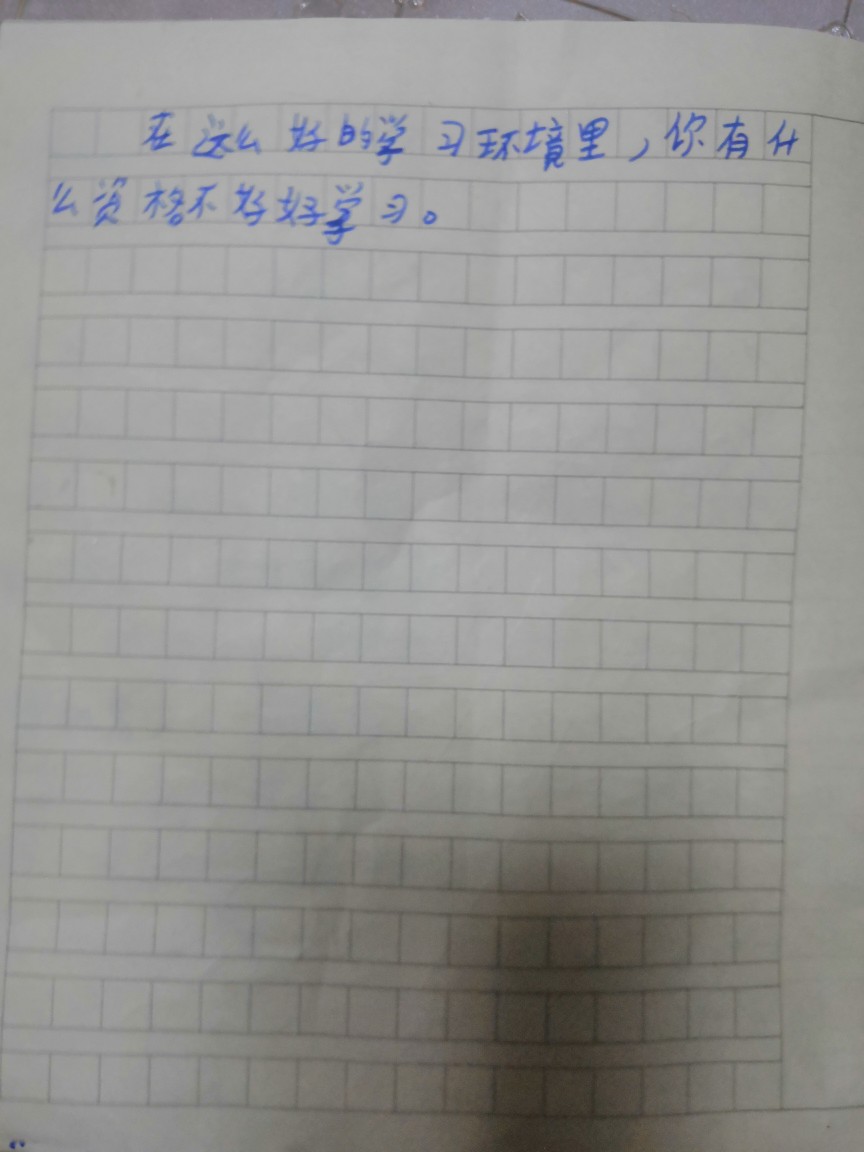 在这么好的学习环境里，你有什
么资格不好好学习。